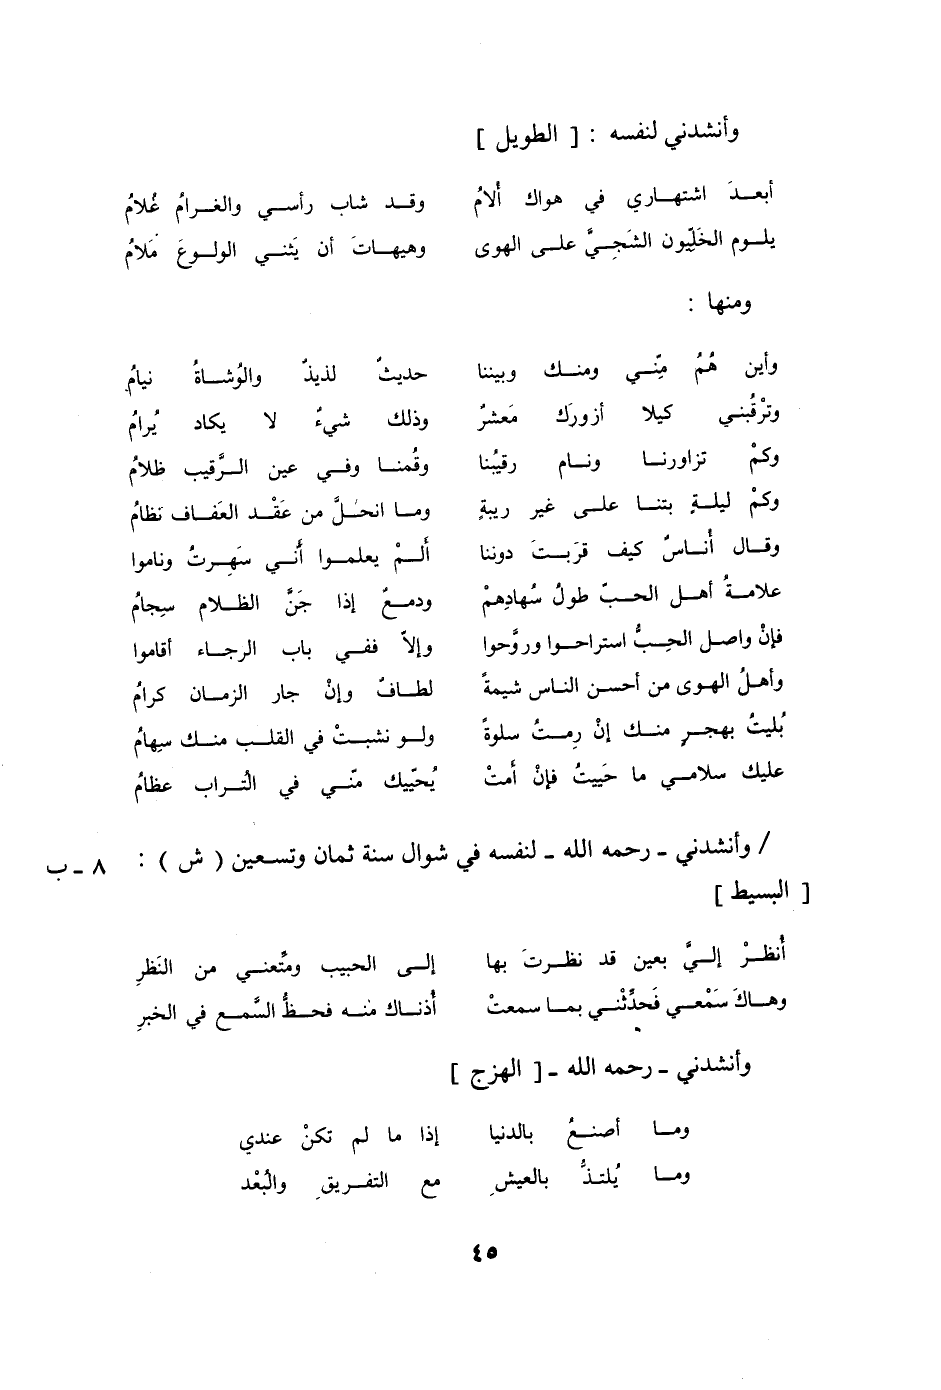 وأنشدني لنفسه : [ الطويل ]
أبعدَ اشتهاري في هواك أُلامُ وقد شاب رأسي والغرامُ غُلامُ
يلوم الخَلِيّون الشَجِيَّ على الهوى وهيهاتَ أن يَثني الولوعَ مَلامُ
ومنها :
وأين هُمُ مِنّي ومنك وبيننا حديثٌ لذيذٌ والوُشاةُ نيامُ
وترْقُبني كيلا أزورَك مَعشرٌ وذلك شيءٌ لا يكاد يُرامُ
وكمْ تزاورنا ونام رقيبُنا وقُمنا وفي عين الرَّقيب ظلامُ
وكمْ ليلةٍ بتنا على غير ريبةٍ وما انحلَّ من عَقْد العَفاف نظامُ
وقال أُناسٌ كيف قرّبتَ دوننا ألمْ يعلموا أنّي سَهِرتُ وناموا
علامةُ أهل الحبّ طولُ سُهادِهمْ ودمعٌ إذا جَنَّ الظلام سِجامُ
فإنْ واصل الحِبُّ استراحوا وروَّحوا وإلاّ ففي باب الرجاء أقاموا
وأهلُ الهوى من أحسن الناس شيمةً لطافٌ وإنْ جار الزمان كرامُ
بُليتُ بهجرٍ منك إنْ رمتُ سلوةً ولو نشبتْ في القلب منك سِهامُ
عليك سلامي ما حَييتُ فإنْ أَمتْ يُحيّيك منّي في التُراب عظامُ
/ وأنشدني ـ رحمه الله ـ لنفسه في شوال سنة ثمان وتسعين ( ش ) : ٨ ـ ب
[ البسيط ]
أُنظرْ إليَّ بعين قد نظرتَ بها إلى الحبيب ومتِّعني من النَظرِ
وهاكَ سَمْعي فَحدِّثْني بما سمعتْ أُذناك منه فحظُّ السَّمع في الخبرِ
وأنشدني ـ رحمه الله ـ [ الهزج ]
وما أصنعُ بالدنيا إذا ما لم تكنْ عندي
وما يُلتذُّ بالعيشِ مع التفريقِ والبُعْد
٤٥